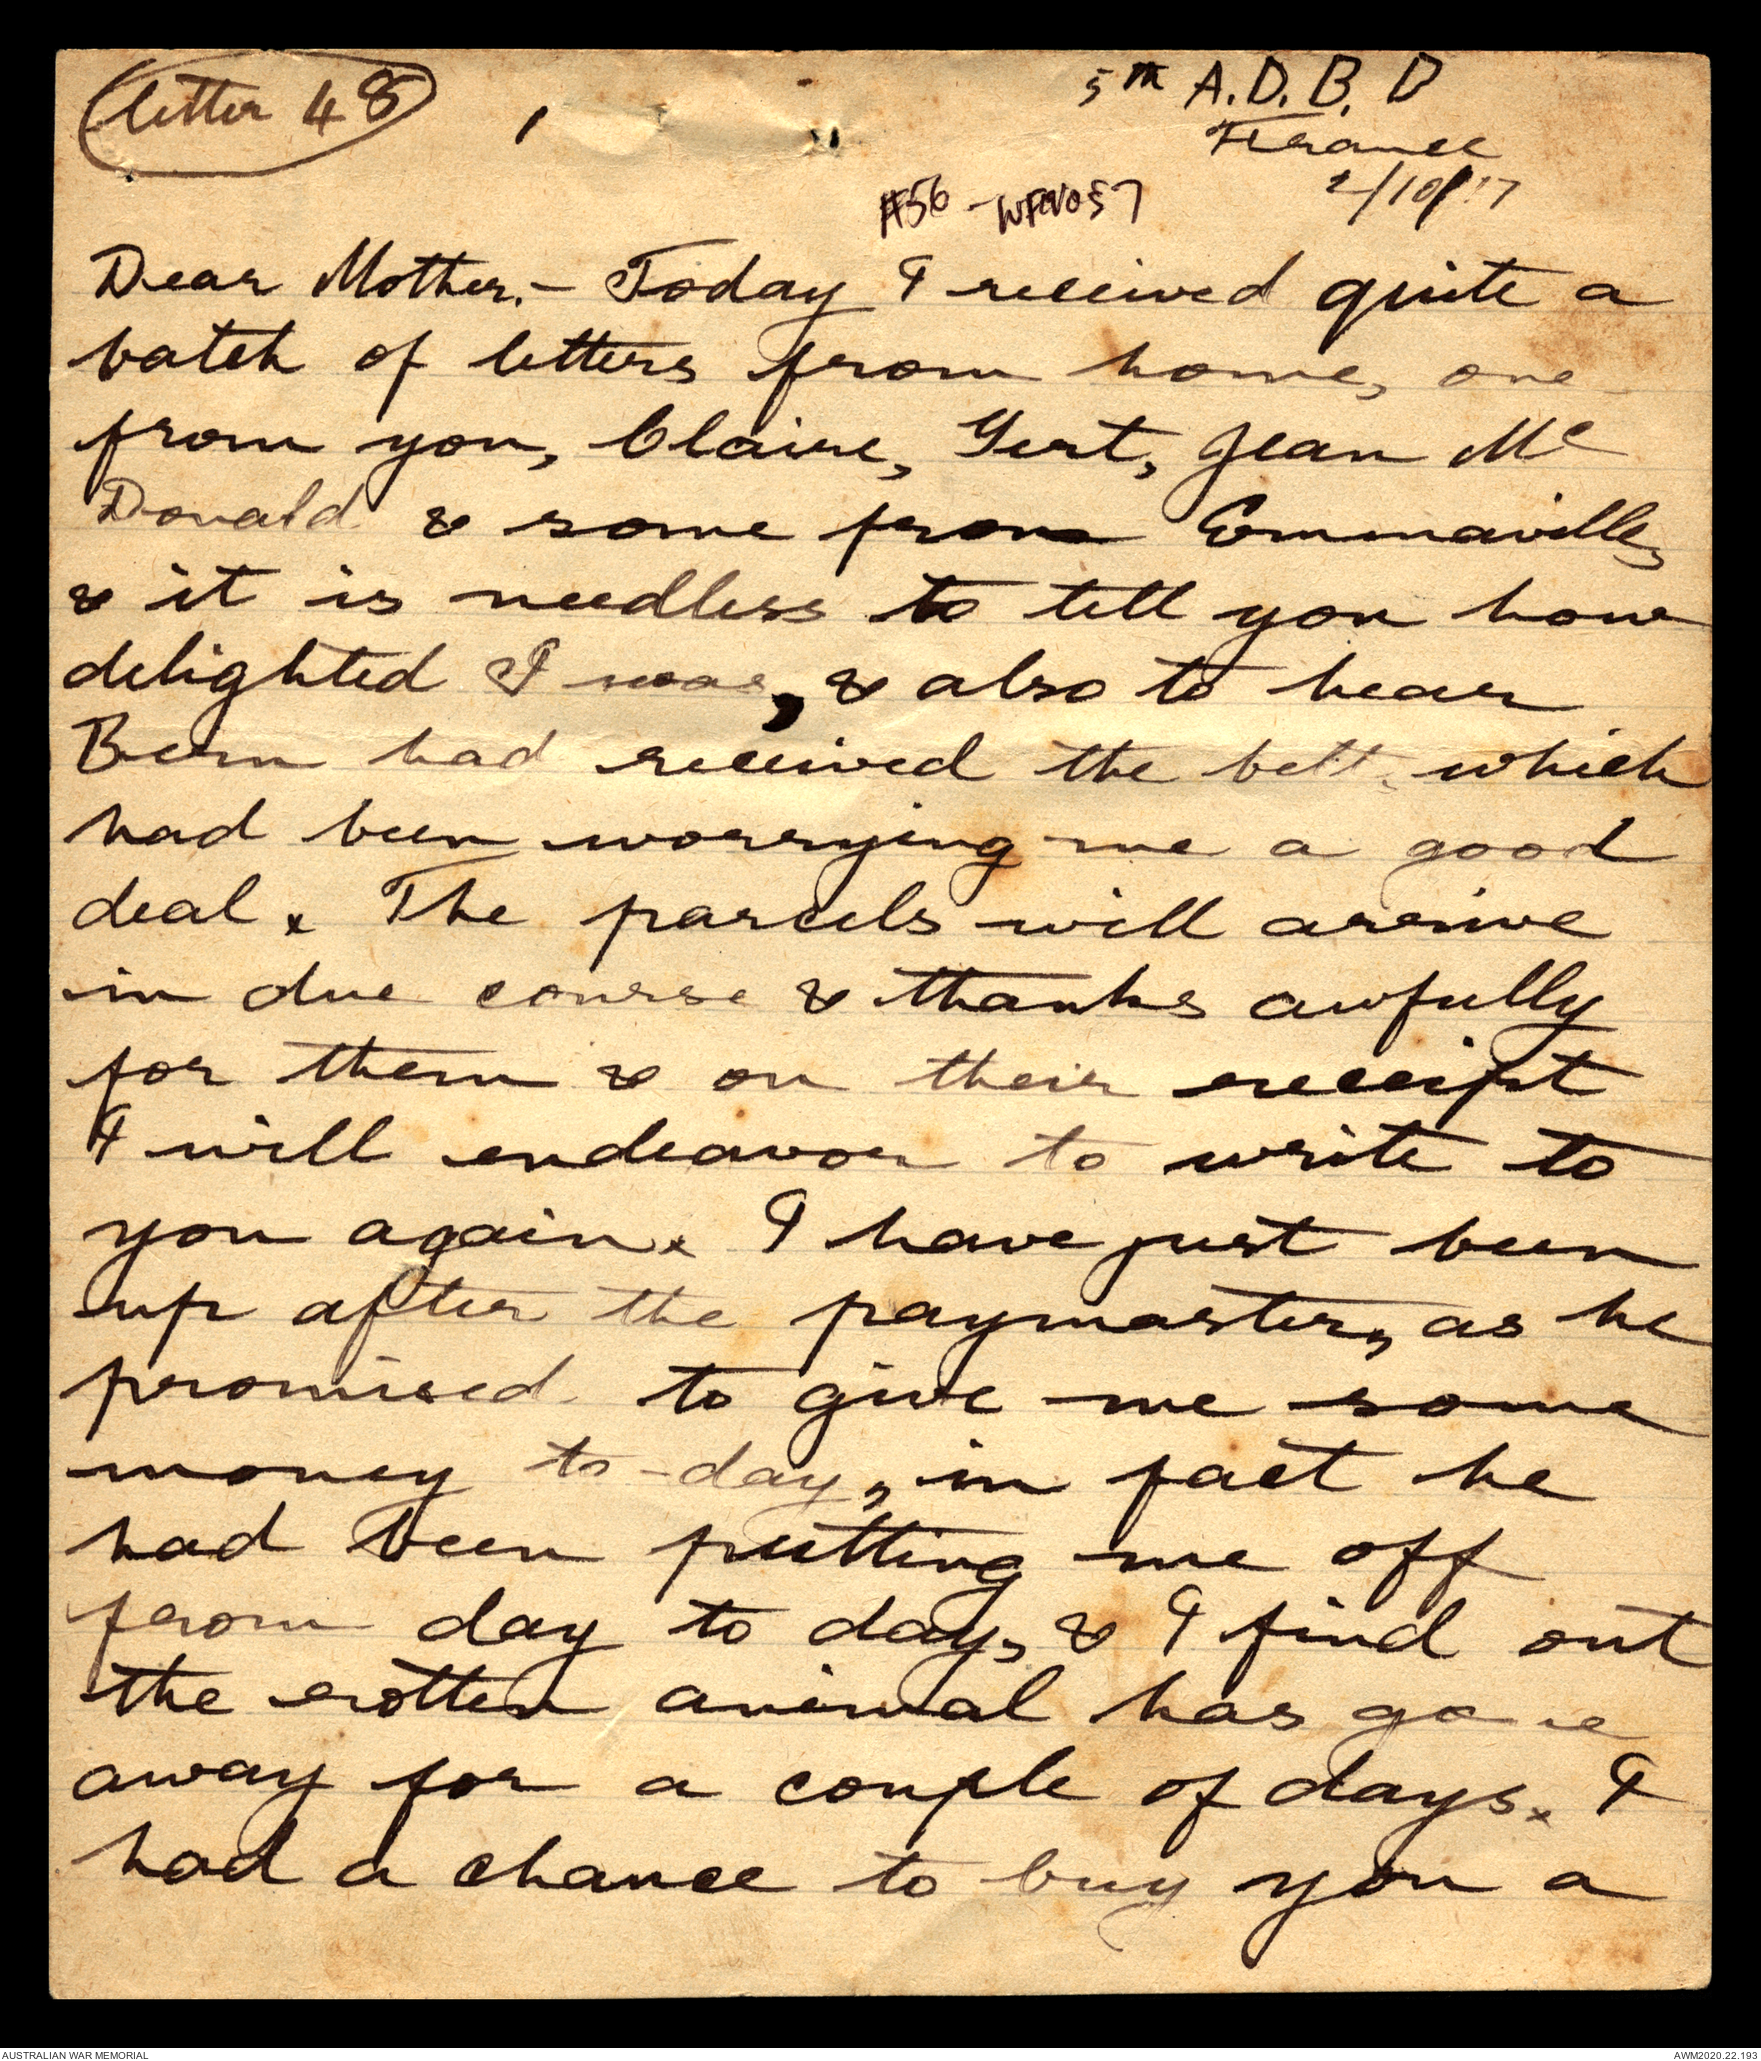 letter 48
5th A.D.B.D
France
2/10/17
#56 -
Dear Mother.- Today I received quite a
batch of letters from home, one
from you, Claire, Gert, Jean Mc
Donald & some from Emmaville,
& it is needless to tell you how
delighted I was, & also to hear
Bern had received the belt, which
had been worrying me a good
deal x The parcels will arrive
in due course & thanks awfully
for them & on their receipt
I will endeavor to write to
you again x I have just been
up after the paymaster, as he
promised to give me some
money to-day, in fact he
had been putting me off
from day to day, & I find out
the rotten animal has gone
away for a couple of days x I
had a chance to buy you a
AUSTRALIAN WAR MEMORIAL
AWM2020.22.193